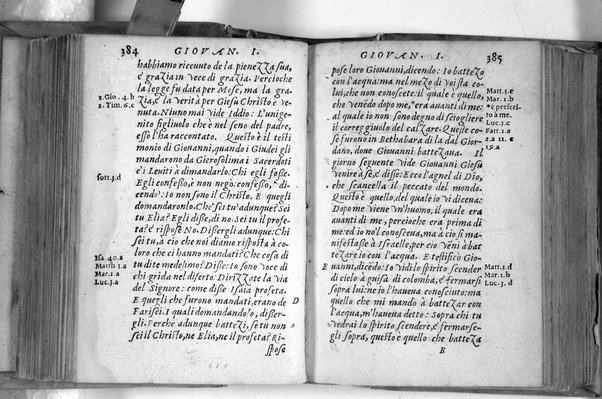 384 GIOVAN. I.
habbiamo riceuuto de la pienezza sua,
è gratia in vece di gratia. Percioche
la legge fu data per Mose, ma la gra-
1. Gio. 4. b
zia, è la verità per Giesu Christo è ve-
1. Tim. 6. c
nuta. Niuno mai vide Iddio: L'unige-
nito figliuolo che è nel seno del padre,
esso l'ha raccontato. Questo è il testi
monio di Giouanni, quando i Giudei gli
mandarono da Gierosolima i Sacerdoti
è i Leuiti à dimandarlo. Chi egli fosse.
sott. 3. d
Egli confesso, è non negò: confesso, di-
cendo: Io non sono il Christo. E quegli
domandaronlo. Che se tu adunque? Sei
tu Elia? Egli disse, di no. Sei tu il profe-
ta? è rispose No. Dissergli adunque: Chi
sei tu, à cio che noi diamo risposta à co-
loro che ci hanno mandati? Che cosa di
Isa. 40. a
tu dite medesimo? Disse: Io sono voce di
Matth. 3. a
chi grida nel diserto: Dirizzate la via
Mar. 1. a
del Signore: come disse Isaia profeta.
Luc. 3. a
E quegli che furono mandati, erano de D
Farisei. I quali domandando'lo, disser-
gli. Perche adunque battezi, se tu non
sei il Christo, ne Elia, ne il profeta? Ri-
spose
GIOVAN. I. 385
pose loro Giouanni, dicendo: Io battezo
con l'acqua: ma nel mezo di voi sta co-
lui, che non conoscete: il quale è quello,
Matt. 3. c
che venēdo dopo me, era auanti di me:
Mar. 1. b
è preferi-
al quale io non sono degno di sciogliere
to à me.
il correggiuolo del calzare. Queste co-
Luc. 3. c
se furono in Bethabara di la dal Gior-
Fatt. 1. a
dano, doue Giouanni battezaua. Il
2. a 11. c
giorno seguente vide Giouanni Giesu
19. a
venire à se, è disse: Ecco l'agnel di Dio,
che scancella il peccato del mondo.
Questo è quello, del quale io vi diceua:
Dopo me viene vn'huomo, il quale era
auanti di me, percioche era prima di
me: ed io nol conosceua, ma à cio si ma-
nifestasse à Israelle, per cio vēni à bat
tezare io con l'acqua. E testificò Gio-
E uanni, dicendo: Io vidi lo spirito scender
Matt. 3. d
di cielo à guisa di colomba, è fermarsi
Mar. 1. b
sopra lui: ne io l'haueua conosciuto: ma
Luc. 3. d
quello che mi mandò à battezar con
l'acqua, m'haueua detto: Sopra chi tu
vedrai lo spirito scendere, è fermarse-
gli sopra, questo è quello che batteza
B